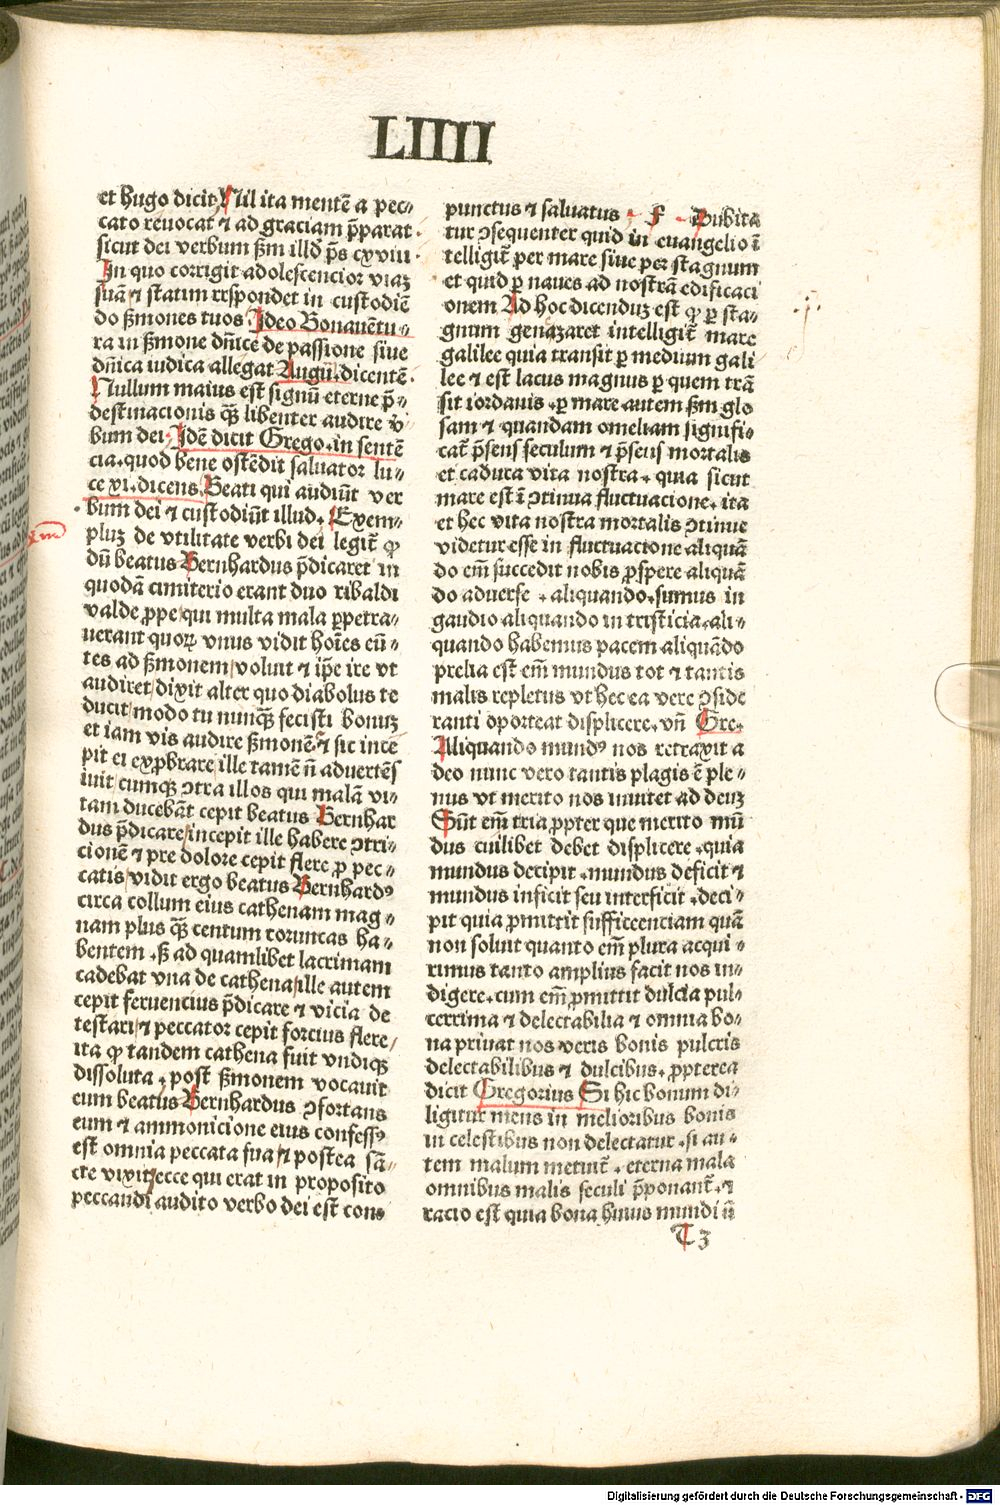 LIIII
et hugo dicit Nil ita mentē a pec⸗
cato reuocat ⁊ ad graciam p̄parat
sicut dei verbum ẞm illđ p̄s cxviii·
In quo corrigit adolescencior viaꝫ
suā ⁊ statim respondet in custodiē
do ẞmones tuos. Ideo Bonauētu⸗
ra in ẞmone dn̄ice de passione siue
dn̄ica iudica allegat Augu. dicentē·
Nullum maius est signū eterne p̄⸗
destinacionis qȝ̄ libenter audire v̓
bum dei· Idē dicit Grego. in sentē
cia. quod bene ostēdit saluator lu⸗
ce xi. dicens. Beati qui audiūt ver
bum dei ⁊ custodiūt illud. Exem⸗
pluꝫ de vtilitate verbi dei legit̄ ꝙ
dū beatus Bernhardus p̄dicaret in
quodā cimiterio erant duo ribaldi
valde ꝓpe qui multa mala ꝑpetra⸗
uerant quoꝝ vnus vidit hoīes eū⸗
tes ad ẞmonem voluit ⁊ ip̄e ire vt
audiret dixit alter quo diabolus te
ducit modo tu nunqȝ̄ fecisti bonuꝫ
et iam vis audire ẞmonē ⁊ sic ince
pit ei exꝓbrare ille tamē n̄ aduertēs
iuit cumqꝫ ɔtra illos qui malā vi⸗
tam ducebāt cepit beatus Bernhar
dus p̄dicare incepit ille habere ɔtri⸗
cionē ⁊ pre dolore cepit flere ꝓ pec⸗
catis vidit ergo beatus Bernhardꝯ
circa collum eius cathenam mag⸗
nam plus qȝ̄ centum toruncas ha⸗
bentem. ẞ ad quamlibet lacrimam
cadebat vna de cathena ille autem
cepit feruencius p̄dicare ⁊ vicia de
testari ⁊ peccator cepit forcius flere
ita ꝙ tandem cathena fuit vndiqꝫ
dissoluta. post ẞmonem vocauit
eum beatus Bernhardus ɔfortans
eum ⁊ ammonicione eius confessꝯ
est omnia peccata sua ⁊ postea sā⸗
cte vixit ecce qui erat in proposito
peccandi audito verbo dei est com
punctus ⁊ saluatus · F · Dubita
tur ɔsequenter quid in euangelio ī
telligit̄ per mare siue per stagnum
et quid ꝑ naues ad nostrā edificaci
onem Ad hoc dicenduꝫ est ꝙ ꝑ sta⸗
gnum genaꝫaret intelligit̄ mare
galilee quia transit ꝑ medium gali
lee ⁊ est lacus magnus ꝑ quem trā
sit iordanis. ꝑ mare autem ẞm glo
sam ⁊ quandam omeliam signifi⸗
cat̄ p̄sens seculum ⁊ p̄sens mortalis
et caduca vita nostra. quia sicut
mare est ī ɔtinua fluctuacione. ita
et hec vita nostra mortalis ɔtinue
videtur esse in fluctuacione aliquā
do em̄ succedit nobis ꝓspere aliquā
do aduerse. aliquando sumus in
gaudio aliquando in tristicia. ali⸗
quando habemus pacem aliquādo
prelia est em̄ mundus tot ⁊ tantis
malis repletus vt hec ea vere ɔside
ranti oporteat displicere. vn̄ Gre.
Aliquando mundꝰ nos retraxit a
deo nunc vero tantis plagis ē ple⸗
nus vt merito nos inuitet ad deuꝫ
Sūt em̄ tria ꝓpter que merito mū
dus cuilibet debet displicere. quia
mundus decipit. mundus deficit ⁊
mundus inficit seu interficit. deci⸗
pit quia ꝓmittit sufficcenciam quā
non soluit quanto em̄ plura acqui⸗
rimus tanto amplius facit nos in⸗
digere. cum em̄ ꝓmittit dulcia pul⸗
cerrima ⁊ delectabilia ⁊ omnia bo⸗
na priuat nos veris bonis pulcris
delectabilibus ⁊ dulcibus. ꝓpterea
dicit Gregorius Si hic bonum di⸗
ligitur mens in melioribus bonis
in celestibus non delectatur. si au⸗
tem malum metuit̄. eterna mala
omnibus malis seculi p̄ponant̄. ⁊
racio est quia bona huius mundi n̄
T 3
Digitalisierung gefördert durch die Deutsche Forschungsgemeinschaft - DFG